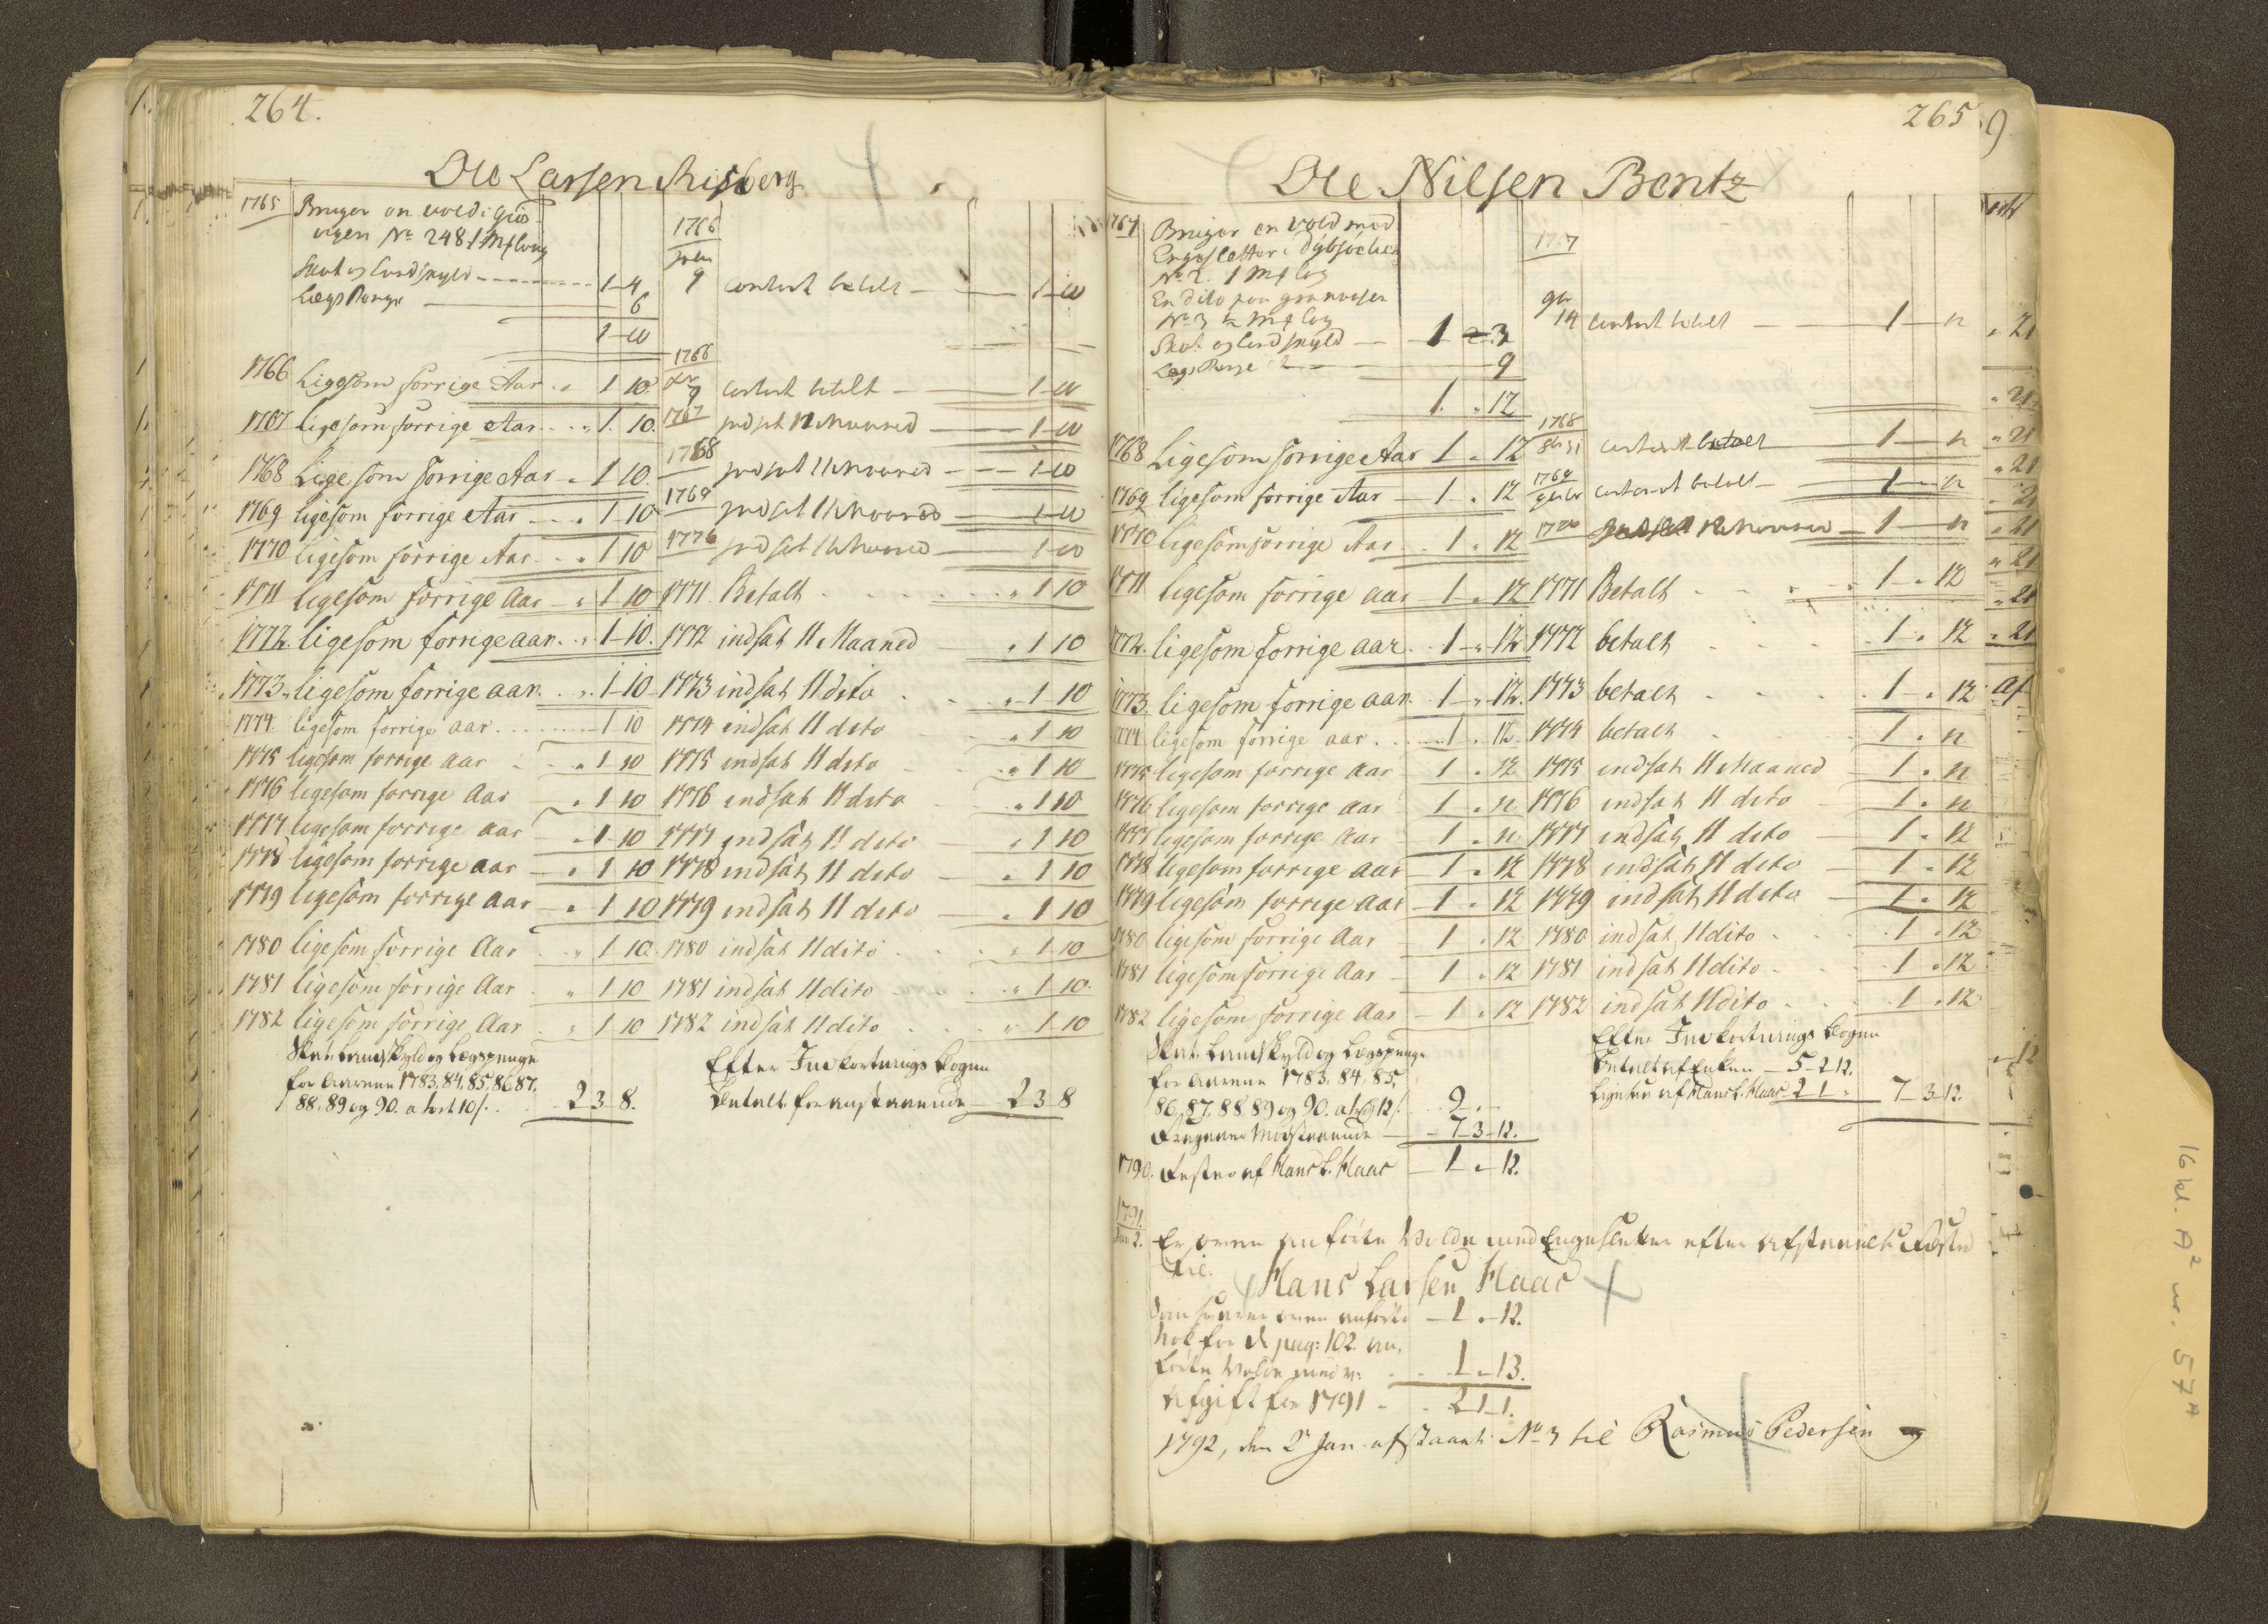 264.
Ole Larsen Risberg
1765 Bruger en vold i Giös
vigen No 248 1 Mf
Skat og Landskyld 1-4
Lægs Penge 6
1-10
1766
9 contant betalt 1-10
1766 Ligesom forrige Aar 1 10
1766 9 contant betalt 1-10
1767 ligesom forrige Aar 1. 10.
1767 indsat 12 Maaned 1-10
1768 Ligesom forrige Aar 1 10.
1768 indsat 11 Maaned 1-10
1769 ligesom forrige Aar 1-10
1769 indsat 11 Maaned 1-10
1770 ligesom forrige Aar 1 10
indsat 11 Maaned 1-10
1771 ligesom forrige Aar 1 10
1771 Betalt 1 10
1772. ligesom forrige aar. 1-10.
1772 indsat 11 Maaned 1 10
1773. ligesom forrige aar. 1-10
1773 indsat 11 dito 1 10
1774 ligesom forrige aar 1 10
1774 indsat 11 dito 1 10
1775 ligesom forrige aar 1 10
1775 indsat 11 dito 1 10
1776 ligesom forrige Aar 1 10
1776 indsat 11 dito 1 10
1777 ligesom forrige aar 1 10
1777 indsat 11 dito 1 10
1778 ligesom forrige aar 1 10
1778 indsat 11 dito 1 10
1779 ligesom forrige aar 1 10
1779 indsat 11 dito 1 10
1780 ligesom forrige Aar 1 10
1780 indsat 11 dito 1 10
1781 ligesom forrige Aar 1 10
1781 indsat 11 dito 1 10.
1782 ligesom forrige Aar 1 10
1782 indsat 11 dito 1 10
Skat, Landskyld og Lægspenge
for Aarene 1783, 84, 85, 86 87,
88, 89 og 90. a 1ort 10/. 2 3 8.
Efter Indkortnings Bogen
Betalt for anstaaende 2 3 8
265.
Ole Nilsen Bentz
1767 Bruger en vold med
Engesletter i Dybsöchen
No 2. 1 Mf
En dito paa granaasen
No 3 ½ Mf
Skat og Landskyld 1 3
Lægs Penge 9
1. 12
1767
14 contant betalt 1 12
1768 Ligesom forrige Aar 1 12
1768 contant betalt 1 12
1769 ligesom forrige Aar 1. 12
1769 contant betalt 1 12
1770 ligesom forrige Aar 1. 12
1770 indsat 12 Maaned 1 12
1771 ligesom forrige aar 1. 12
1771 Betalt 1. 12
1772. ligesom forrige aar. 1. 12
1772 betalt 1. 12
1773 ligesom forrige aar. 1. 12.
1773 betalt 1. 12
1774 ligesom forrige aar 1. 12.
1774 betalt 1. 12
1775 ligesom forrige Aar 1. 12
1775 indsat 11 Maaned 1. 12
1776 ligesom forrige aar 1. 12
1776 indsat 11 dito 1. 12
1777 ligesom forrige aar 1. 12
1777 indsat 11 dito 1. 12
1778 ligesom forrige aar 1. 12
1778 indsat 11 dito 1. 12
1779 ligesom forrige Aar 1. 12
1779 indsat 11 dito 1. 12
1780 ligesom forrige Aar 1. 12
1780 indsat 11 dito 1. 12
1781 ligesom forrige Aar 1. 12
1781 indsat 11 dito 1. 12
1782 ligesom forrige Aar 1. 12
1782 indsat 11 dito 1. 12
Skat, Landskyld og Lægspenge
for Aarene 1783, 84, 85,
86, 87, 88 89 og 90. a 1 ort 12/. 9.
Fragaaer Modstaaende 7-3-12.
Efter Indkortnings Bogen
Betalt af Enken 5-2-12.
Ligesaa af Hans L. Haas 2 1 7-3-12.
1790. Rester af Hans L. Haas 1. 12.
1791.
Jan 2. Er oven anförte Volde med Engesletter efter Afstaaelse Fæsted
til
Hans Larsen Haas
som svarer oven anförte 1. 12.
Nok for d pag: 102. an,
förte Volde med 1. 13.
Afgift for 1791 2 1 1.
1792, den 2 Jan. afstaaet No 3 til Rasmus Pedersen
16 kl. A² nr. 57ᴬ